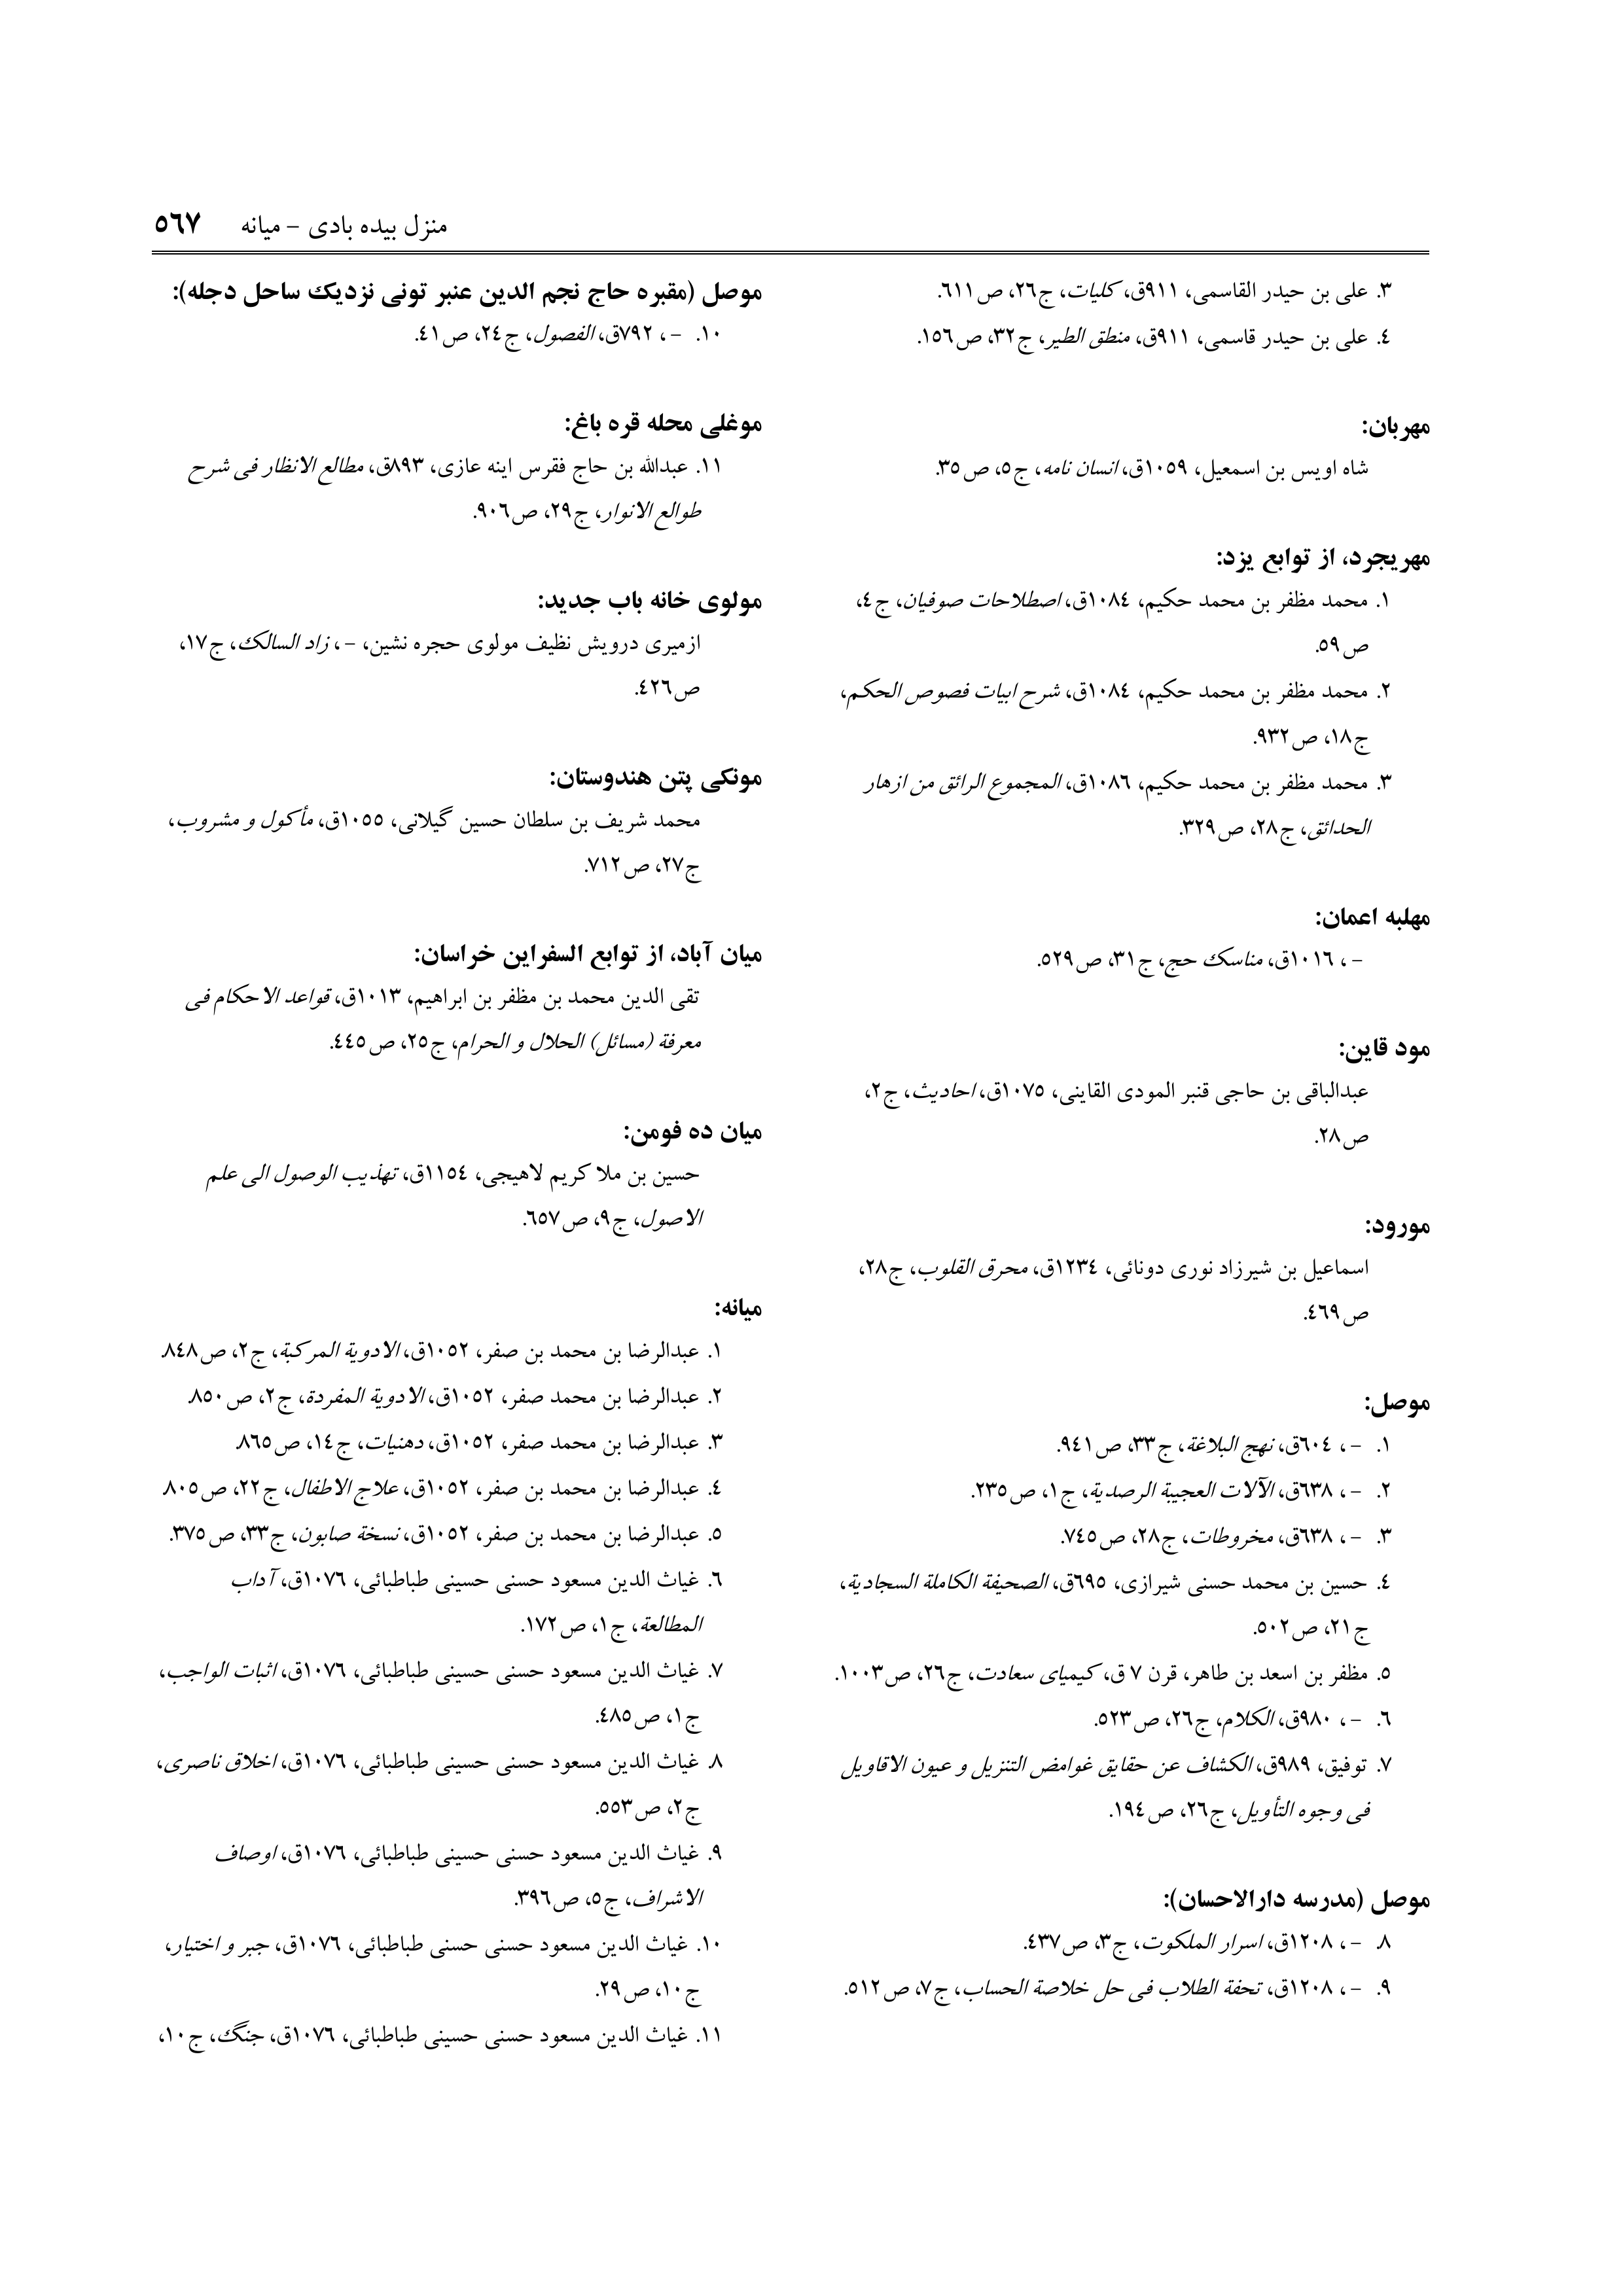 منزل بیده بادی – میانه ٥٦٧
٣. علی بن حیدر القاسمی، ٩١١ق، کلیات، ج٢٦، ص٦١١.
٤. علی بن حیدر قاسمی، ٩١١ق، منطق الطیر، ج٣٢، ص١٥٦.
مهربان:
شاه اویس بن اسمعیل، ١٠٥٩ق، انسان نامه، ج٥، ص٣٥.
مهریجرد، از توابع یزد:
١. محمد مظفر بن محمد حکیم، ١٠٨٤ق، اصطلاحات صوفیان، ج٤،
ص٥٩.
٢. محمد مظفر بن محمد حکیم، ١٠٨٤ق، شرح ابیات فصوص الحکم،
ج١٨، ص٩٣٢.
٣. محمد مظفر بن محمد حکیم، ١٠٨٦ق، المجموع الرائق من ازهار
الحدائق، ج٢٨، ص٣٢٩.
مهلبه اعمان:
– ، ١٠١٦ق، مناسک حج، ج٣١، ص٥٢٩.
مود قاین:
عبدالباقی بن حاجی قنبر المودی القاینی، ١٠٧٥ق، احادیث، ج٢،
ص٢٨.
مورود:
اسماعیل بن شیرزاد نوری دونائی، ١٢٣٤ق، محرق القلوب، ج٢٨،
ص٤٦٩.
موصل:
١. – ، ٦٠٤ق، نهج البلاغة، ج٣٣، ص٩٤١.
٢. – ، ٦٣٨ق، الآلات العجیبة الرصدیة، ج١، ص٢٣٥.
٣. – ، ٦٣٨ق، مخروطات، ج٢٨، ص٧٤٥.
٤. حسین بن محمد حسنی شیرازی، ٦٩٥ق، الصحیفة الکاملة السجادیة،
ج٢١، ص٥٠٢.
٥. مظفر بن اسعد بن طاهر، قرن ٧ ق، کیمیای سعادت، ج٢٦، ص١٠٠٣.
٦. – ، ٩٨٠ق، الکلام، ج٢٦، ص٥٢٣.
٧. توفیق، ٩٨٩ق، الکشاف عن حقایق غوامض التنزیل و عیون الاقاویل
فی وجوه التأویل، ج٢٦، ص١٩٤.
موصل (مدرسه دارالاحسان):
٨. – ، ١٢٠٨ق، اسرار الملکوت، ج٣، ص٤٣٧.
٩. – ، ١٢٠٨ق، تحفة الطلاب فی حل خلاصة الحساب، ج٧، ص٥١٢.
موصل (مقبره حاج نجم الدین عنبر تونی نزدیک ساحل دجله):
١٠. – ، ٧٩٢ق، الفصول، ج٢٤، ص٤١.
موغلی محله قره باغ:
١١. عبدالله بن حاج فقرس اینه عازی، ٨٩٣ق، مطالع الانظار فی شرح
طوالع الانوار، ج٢٩، ص٩٠٦.
مولوی خانه باب جدید:
ازمیری درویش نظیف مولوی حجره نشین، – ، زاد السالک، ج١٧،
ص٤٢٦.
مونکی پتن هندوستان:
محمد شریف بن سلطان حسین گیلانی، ١٠٥٥ق، مأکول و مشروب،
ج٢٧، ص٧١٢.
میان آباد، از توابع السفراین خراسان:
تقی الدین محمد بن مظفر بن ابراهیم، ١٠١٣ق، قواعد الاحکام فی
معرفة (مسائل) الحلال و الحرام، ج٢٥، ص٤٤٥.
میان ده فومن:
حسین بن ملا کریم لاهیجی، ١١٥٤ق، تهذیب الوصول الی علم
الاصول، ج٩، ص٦٥٧.
میانه:
١. عبدالرضا بن محمد بن صفر، ١٠٥٢ق، الادویة المرکبة، ج٢، ص٨٤٨.
٢. عبدالرضا بن محمد صفر، ١٠٥٢ق، الادویة المفردة، ج٢، ص٨٥٠.
٣. عبدالرضا بن محمد صفر، ١٠٥٢ق، دهنیات، ج١٤، ص٨٦٥.
٤. عبدالرضا بن محمد بن صفر، ١٠٥٢ق، علاج الاطفال، ج٢٢، ص٨٠٥.
٥. عبدالرضا بن محمد بن صفر، ١٠٥٢ق، نسخة صابون، ج٣٣، ص٣٧٥.
٦. غیاث الدین مسعود حسنی حسینی طباطبائی، ١٠٧٦ق، آداب
المطالعة، ج١، ص١٧٢.
٧. غیاث الدین مسعود حسنی حسینی طباطبائی، ١٠٧٦ق، اثبات الواجب،
ج١، ص٤٨٥.
٨. غیاث الدین مسعود حسنی حسینی طباطبائی، ١٠٧٦ق، اخلاق ناصری،
ج٢، ص٥٥٣.
٩. غیاث الدین مسعود حسنی حسینی طباطبائی، ١٠٧٦ق، اوصاف
الاشراف، ج٥، ص٣٩٦.
١٠. غیاث الدین مسعود حسنی حسنی طباطبائی، ١٠٧٦ق، جبر و اختیار،
ج١٠، ص٢٩.
١١. غیاث الدین مسعود حسنی حسینی طباطبائی، ١٠٧٦ق، جنگ، ج١٠،